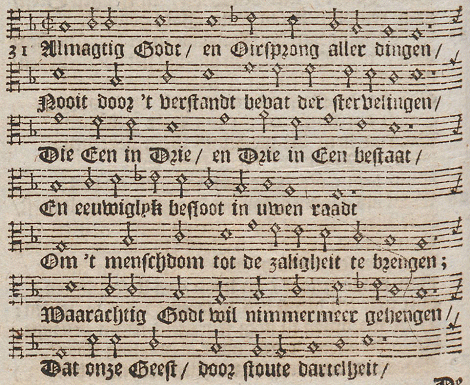 31 Almagtig Godt/ en Oirsprong aller dingen/
Nooit door 't verstandt bevat der stervelingen/
Die Een in Drie/ en Drie in Een bestaat/
En eeuwiglyk besloot in uwen raadt
Om 't menschdom tot de zaligheit te brengen;
Waarachtig Godt wil nimmermeer gehengen/
Dat onze Geest/ door stoute dartelheit/
De